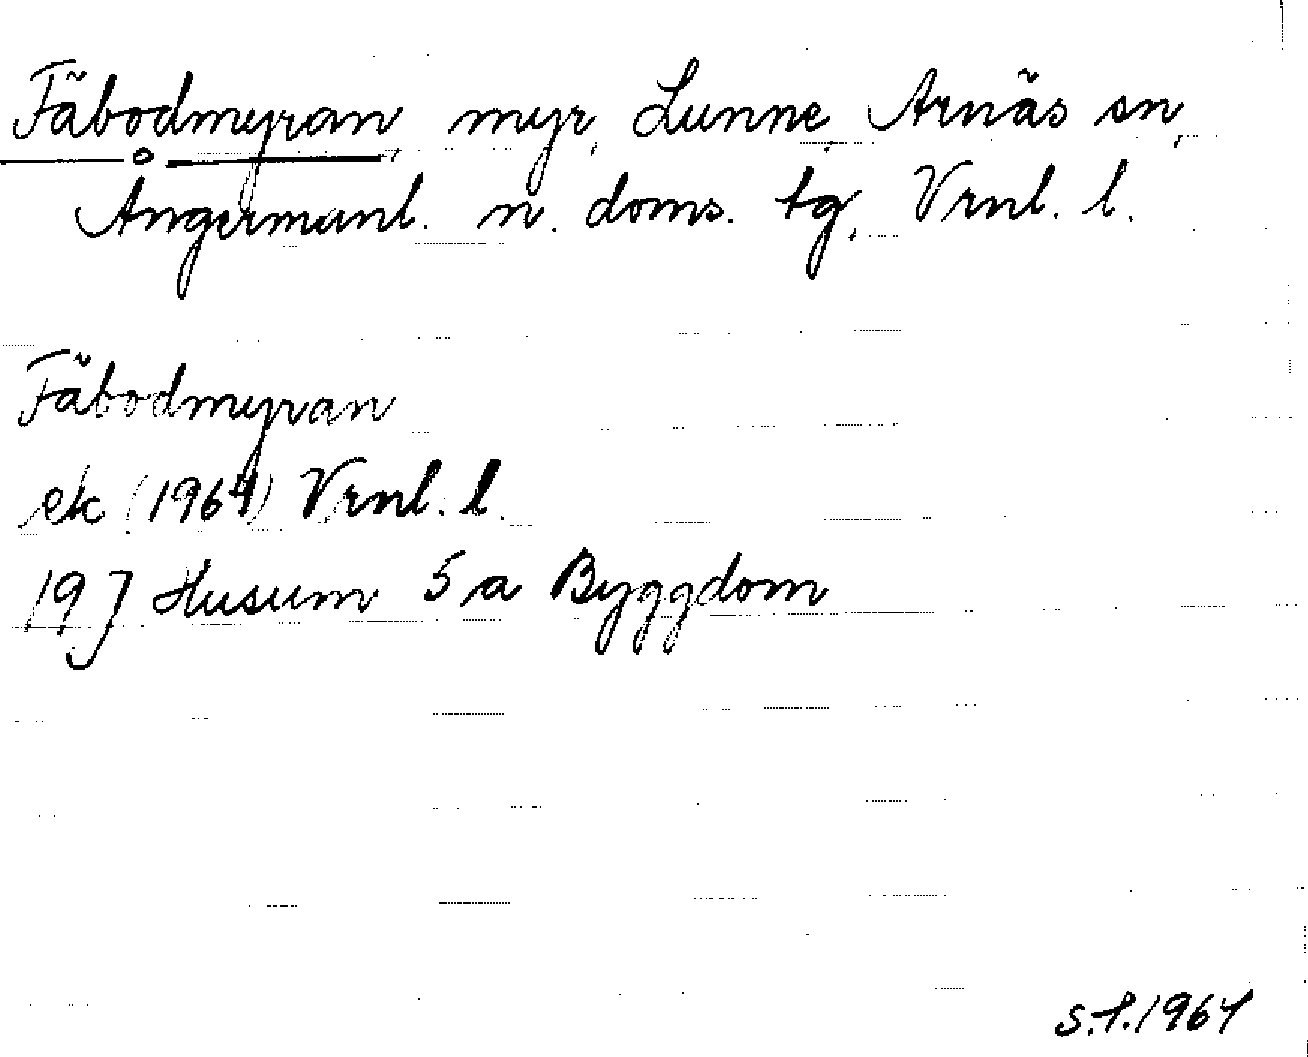 Fäbodmyran, myr, Lunne, Arnäs sn,
Ångermanl. n. doms. tg, Vrnl. l.
Fäbodmyran
ek (1964) Vrnl. l.
19 J Husum 5 a Byggdom
S.P. 1964